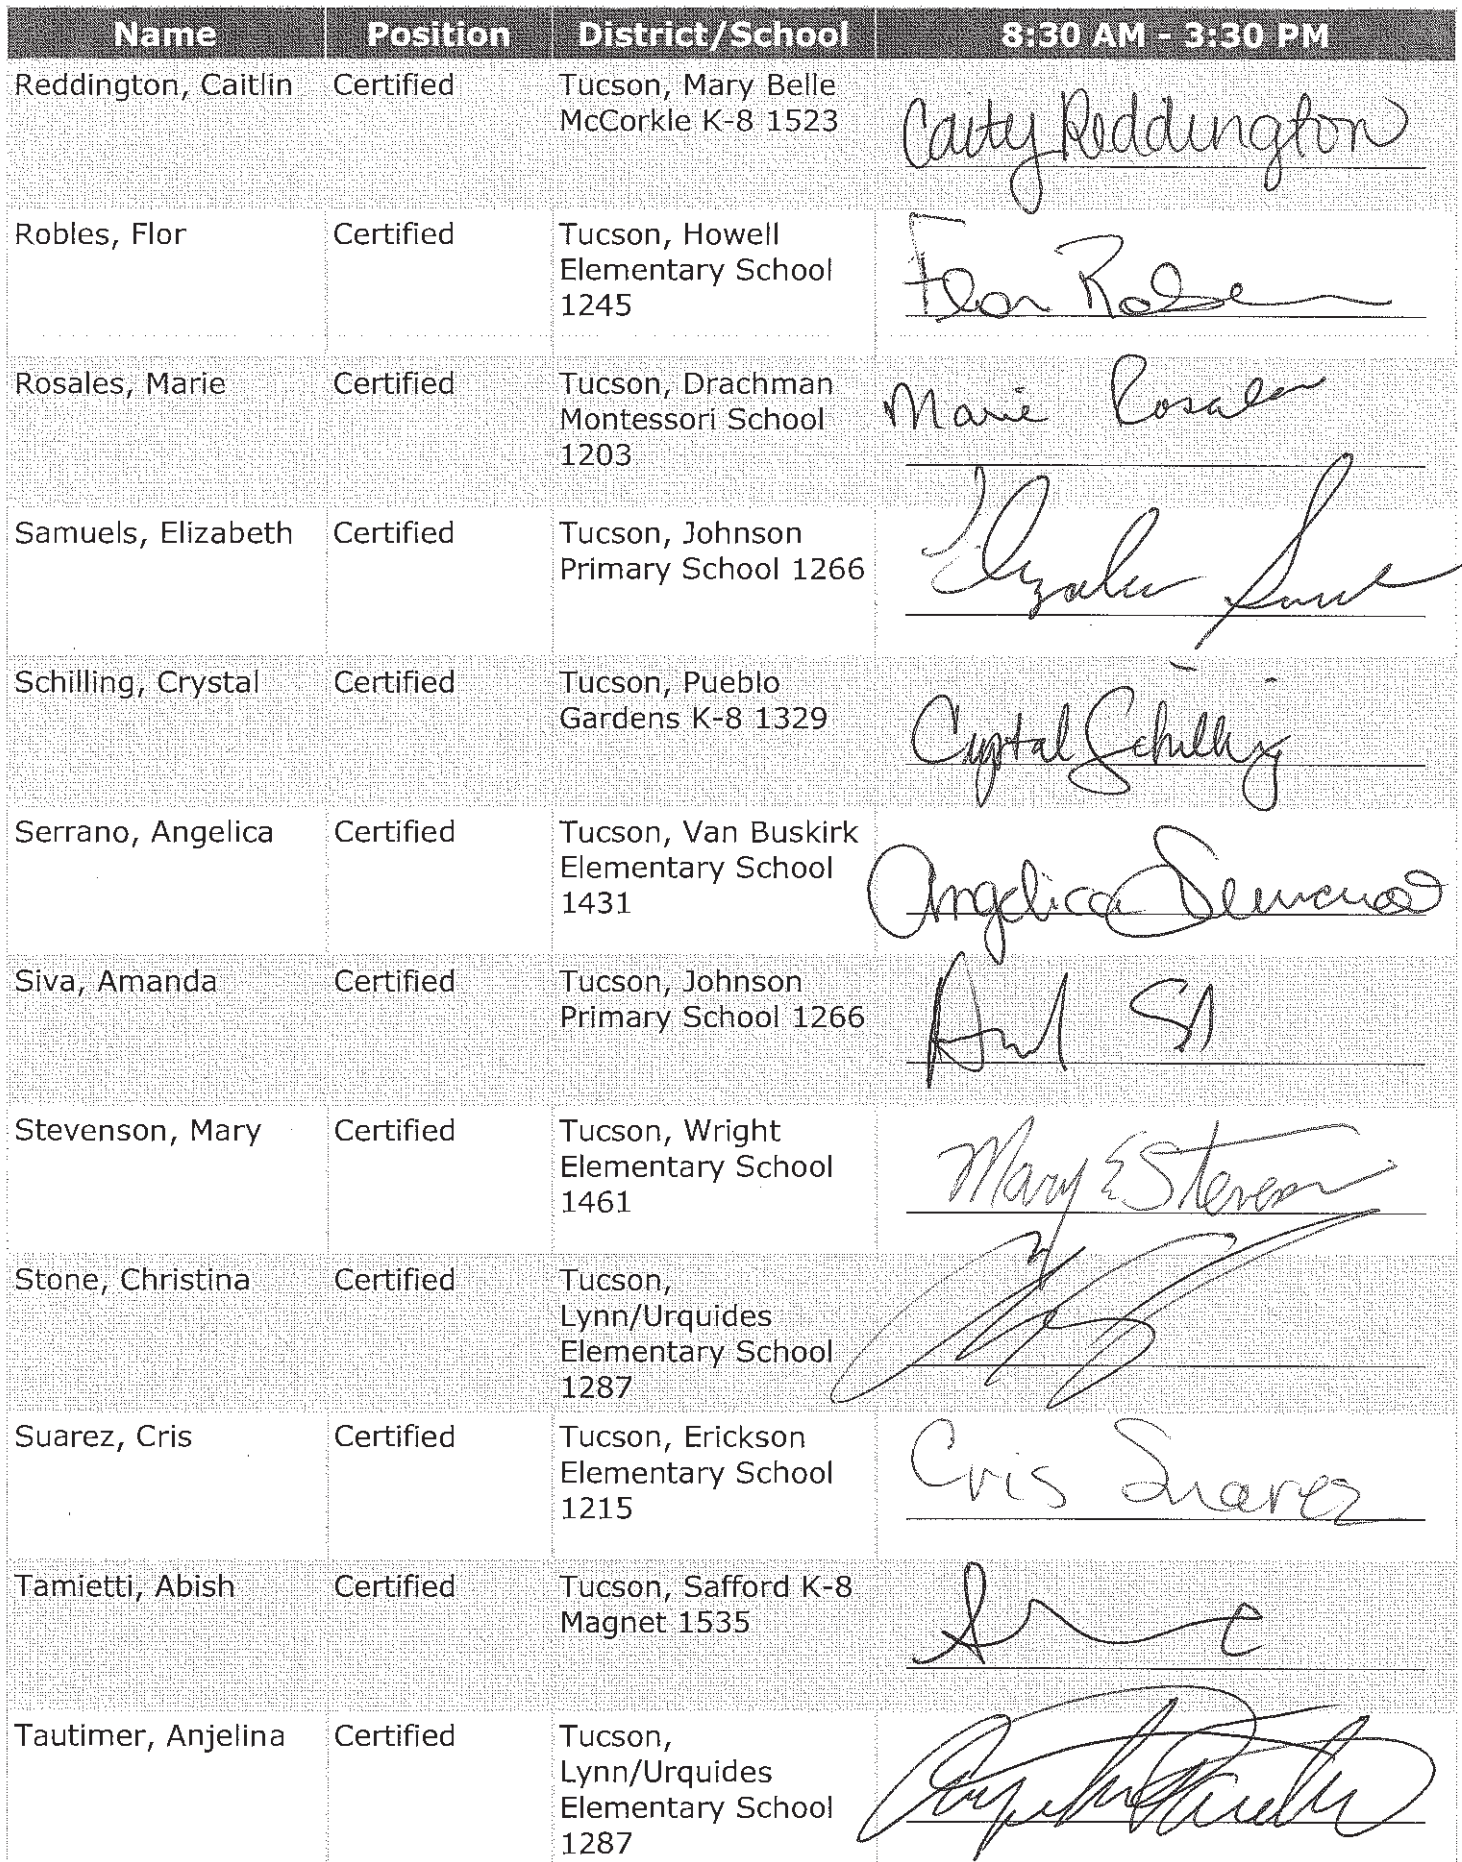 Name Position District/School 8:30 AM - 3:30 PM
Reddington, Caitlin Certified Tucson, Mary Belle
McCorkle K-8 1523
Caity Reddington
Robles, Flor Certified Tucson, Howell
Elementary School
1245
Flor Robles
Rosales, Marie Certified Tucson, Drachman
Montessori School
1203
Marie Rosales
Samuels, Elizabeth Certified Tucson, Johnson
Primary School 1266
Schilling, Crystal Certified Tucson, Pueblo
Gardens K-8 1329
Crystal Schilling
Serrano, Angelica Certified Tucson, Van Buskirk
Elementary School
1431
Angelica Serrano
Siva, Amanda Certified Tucson, Johnson
Primary School 1266
Stevenson, Mary Certified Tucson, Wright
Elementary School
1461
Mary E Stevenson
Stone, Christina Certified Tucson,
Lynn/Urquides
Elementary School
1287
Suarez, Cris Certified Tucson, Erickson
Elementary School
1215
Cris Suarez
Tamietti, Abish Certified Tucson, Safford K-8
Magnet 1535
Tautimer, Anjelina Certified Tucson,
Lynn/Urquides
Elementary School
1287